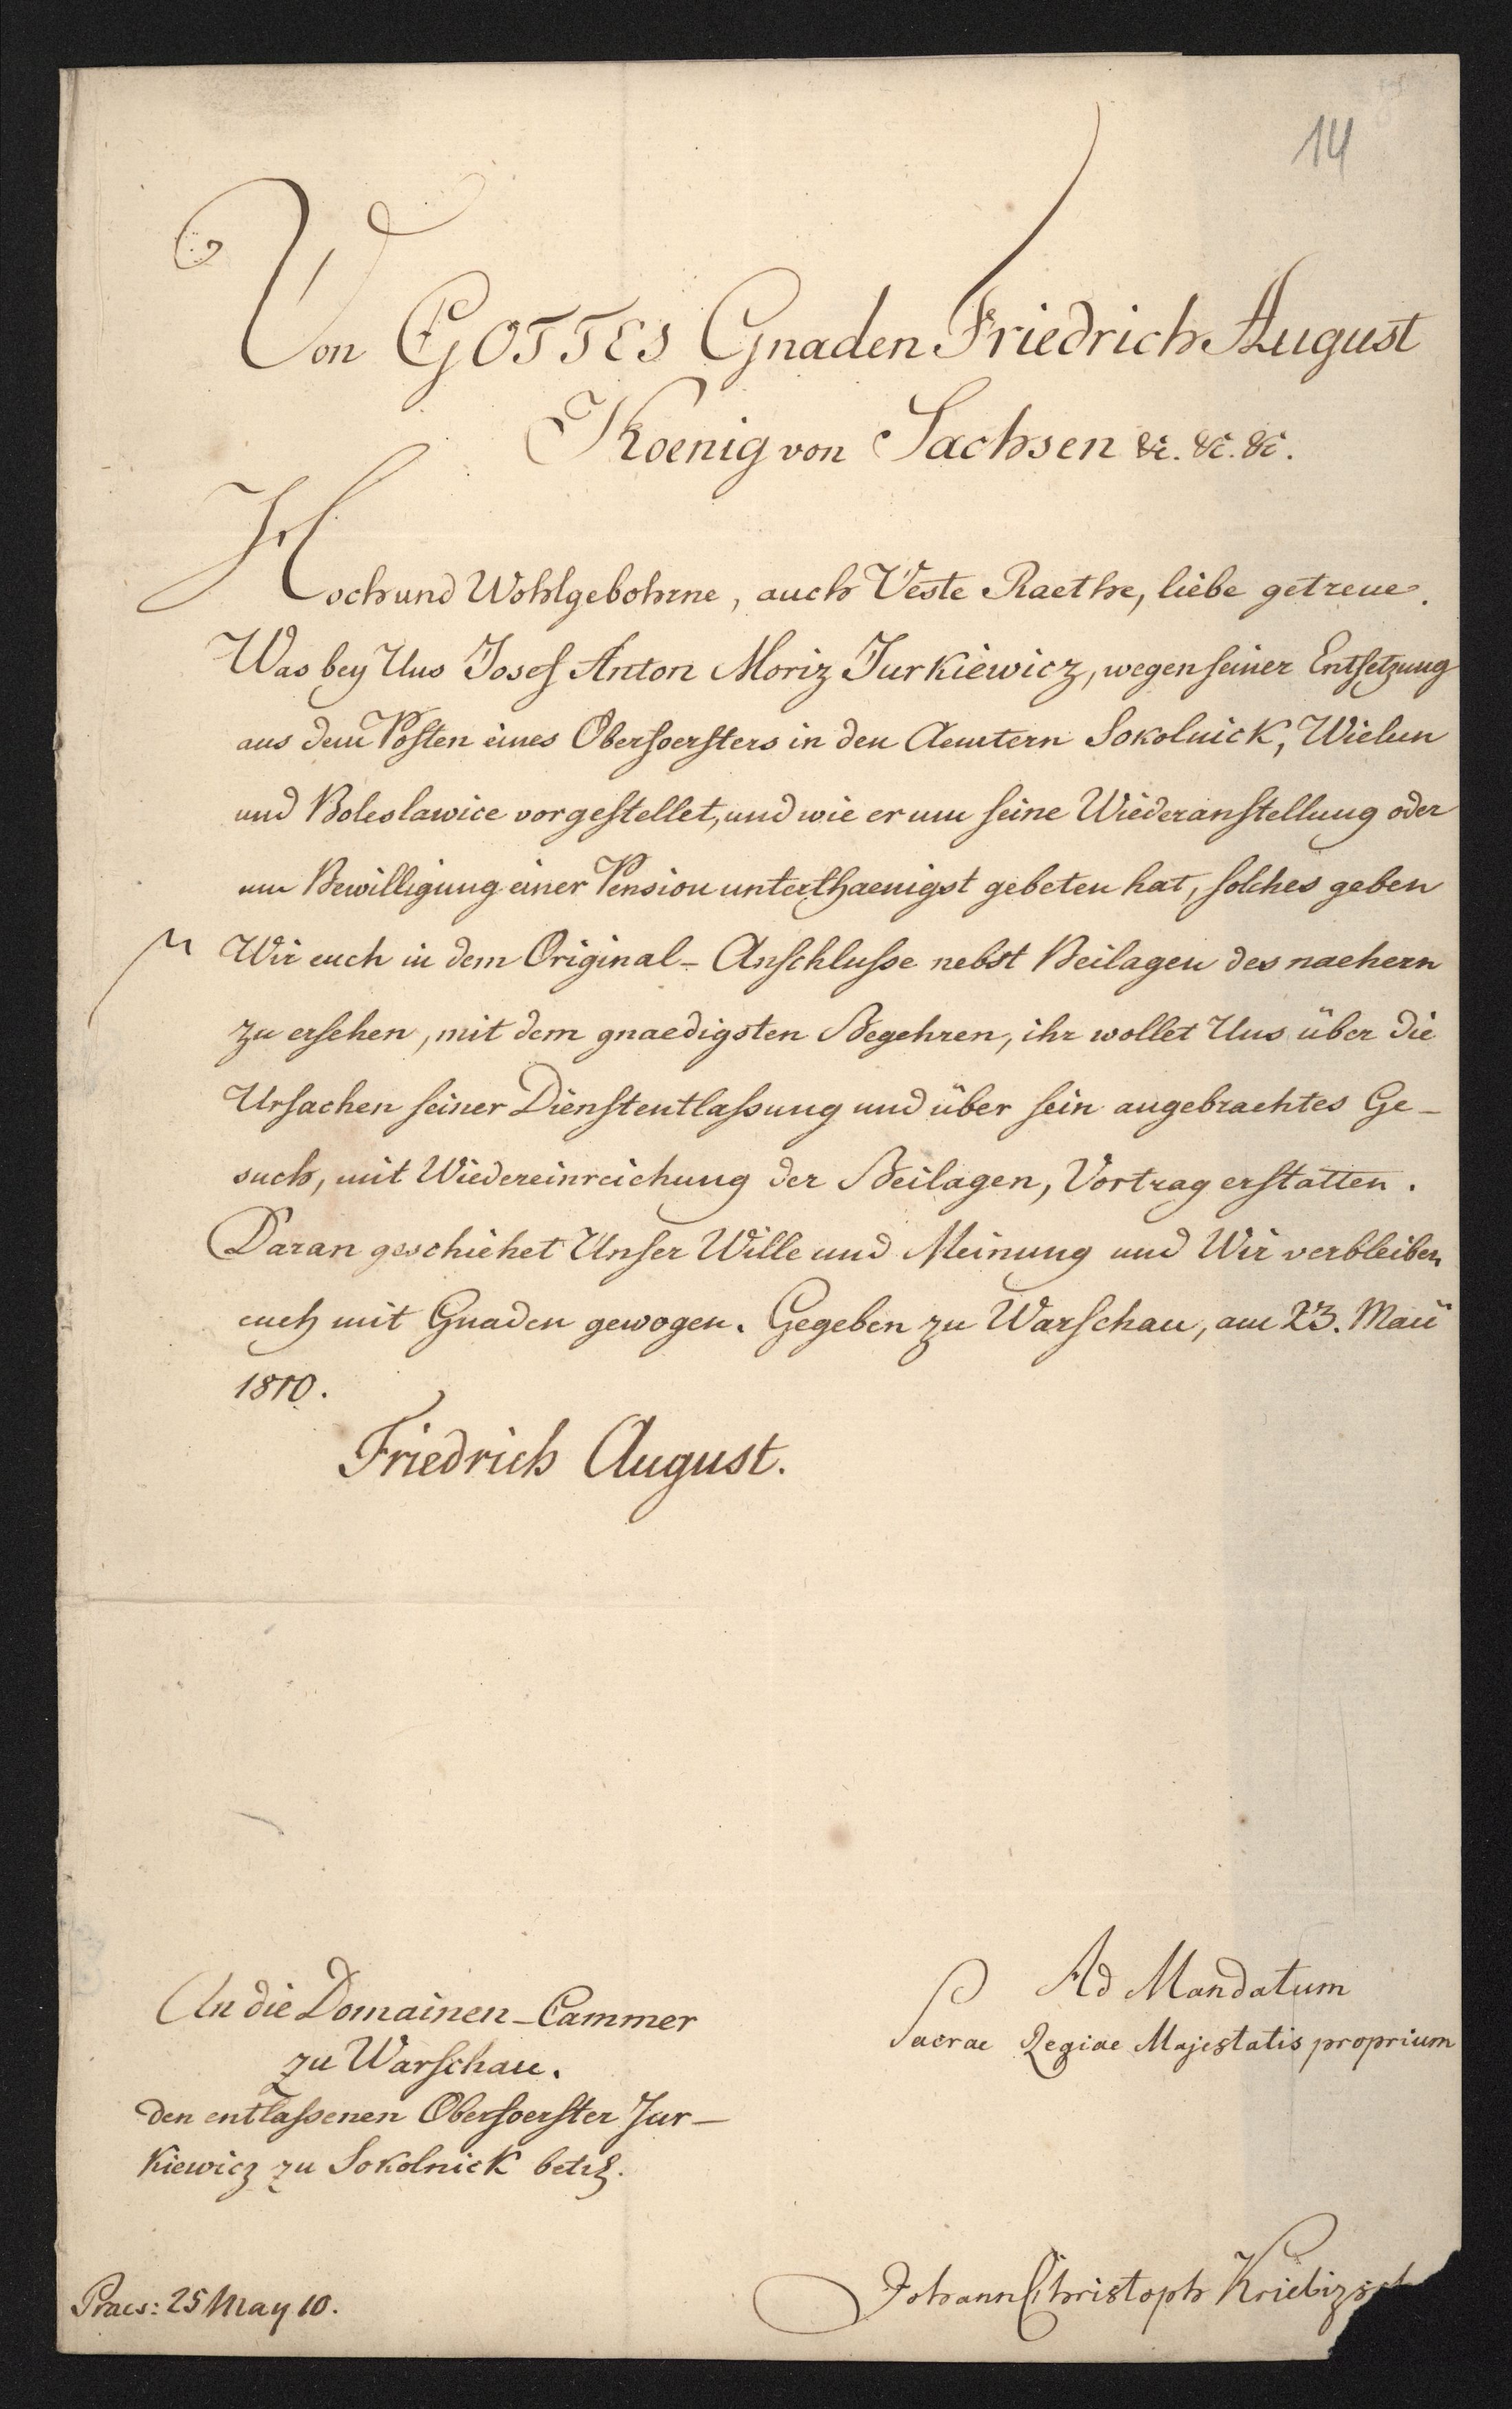 14
Von GOTTES Gnaden Friedrich August
Koenig von Sachsen &c. &c. &c.
Hoch und Wohlgebohrne, auch Veste Raethe, liebe getreue.
Was bey Uns Josef Anton Moriz Jurkiewicz, wegen seiner Entsetzung
aus dem Posten eines Oberfoersters in den Aemtern Sokolnick, Wielun
und Boleslawice vorgestellet, und wie er um seine Wiederanstellung oder
um Bewilligung einer Pension unterthaenigst gebeten hat, solches geben
Wir euch in dem Original-Anschluße nebst Beilagen des naehern
zu ersehen, mit dem gnaedigsten Begehren, ihr wollet Uns über die
Ursachen seiner Dienstentlaßung und über sein angebrachtes Ge-
such, mit Wiedereinreichung der Beilagen, Vortrag erstatten.
Daran geschiehet Unser Wille und Meinung und Wir verbleiben
euch mit Gnaden gewogen. Gegeben zu Warschau, am 23. Maii
1810.
Friedrich August.
An die Domainen-Cammer
zu Warschau.
den entlaßenen Oberfoerster Jur-
kiewicz zu Sokolnick betr.
Ad Mandatum
Sacrae Regiae Majestatis proprium
Praes: 25 May 10.
Johann Christoph